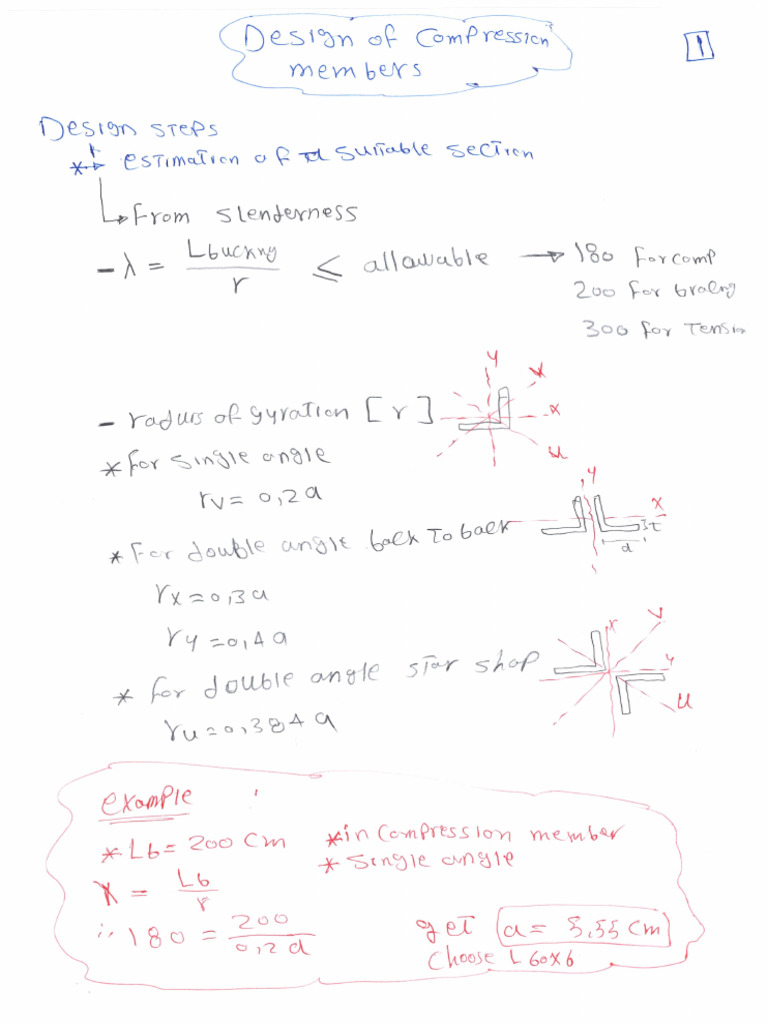 Design of compression
members
1
Design steps
* estimation of suitable section
From slenderness
- λ = Lbuckng / r ≤ allowable → 180 for comp
200 for bracing
300 for Tension
y
V
- radius of gyration [r]
x
u
* for single angle
rv = 0,2a
y
x
* For double angle back to back
t
a
rx = 0,3a
ry = 0,4a
x
V
y
* for double angle star shap
u
ru = 0,384a
example
* Lb = 200 cm * in compression member
* single angle
λ = Lb / r
∴ 180 = 200 / 0,2a get a = 5,55 cm
choose L 60x6